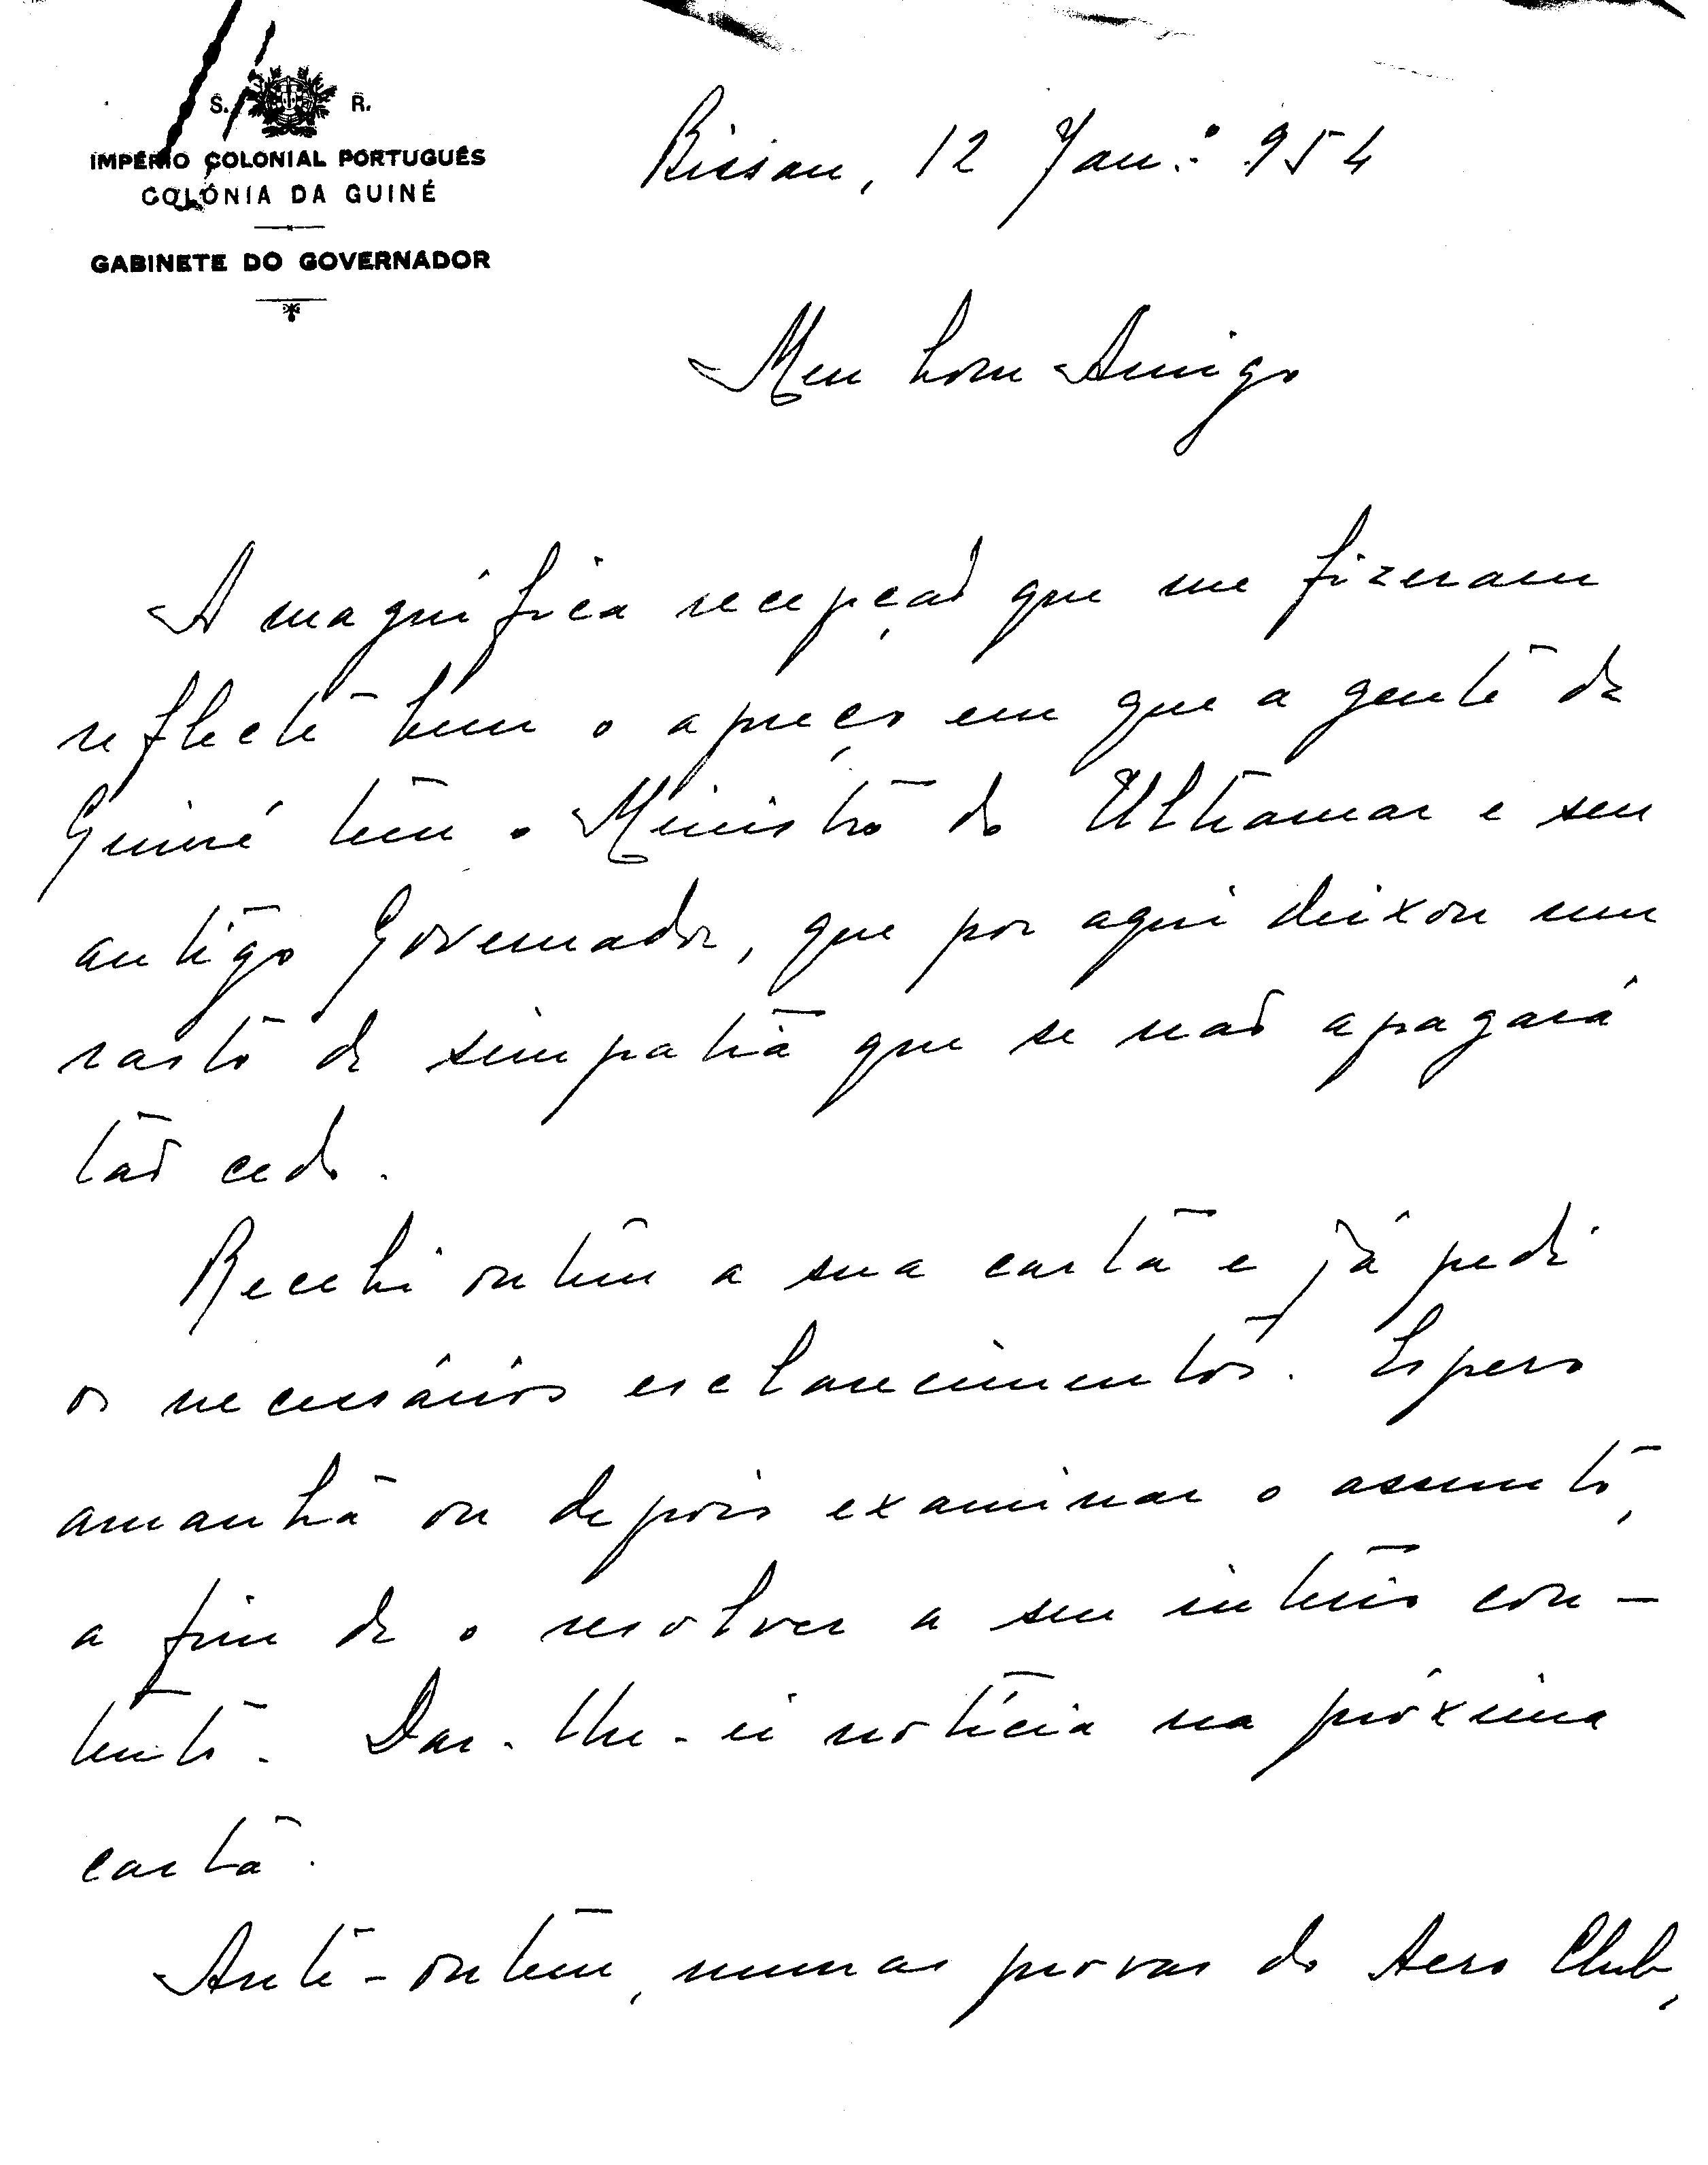 S. R.
IMPÉRIO COLONIAL PORTUGUÊS
COLÓNIA DA GUINÉ
GABINETE DO GOVERNADOR
Bissau, 12 Jan.º 954
Meu bom Amigo
A magnífica recepção que me fizeram
reflecte bem o apreço em que a gente da
Guiné tem o Ministro do Ultramar e seu
antigo Governador, que por aqui deixou um
rasto de simpatia que se não apagará
tão cedo.
Recebi ontem a sua carta e já pedi
os necessários esclarecimentos. Espero
amanhã ou depois examinar o assunto,
a fim de o resolver a seu inteiro con-
tento. Dar-lhe-ei notícia na próxima
carta.
Ante-ontem, numas provas do Aero Club,